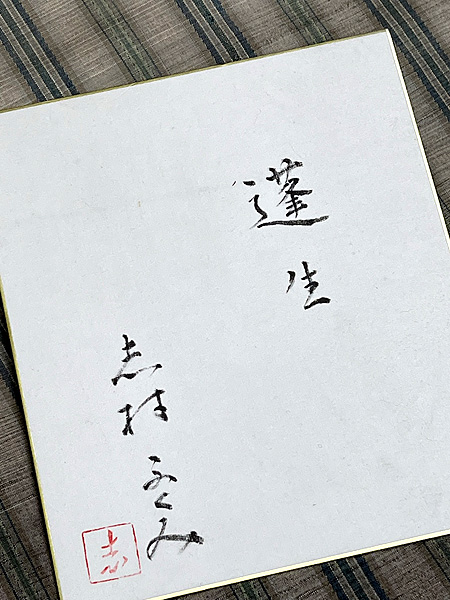 蓬生
志村ふくみ
志